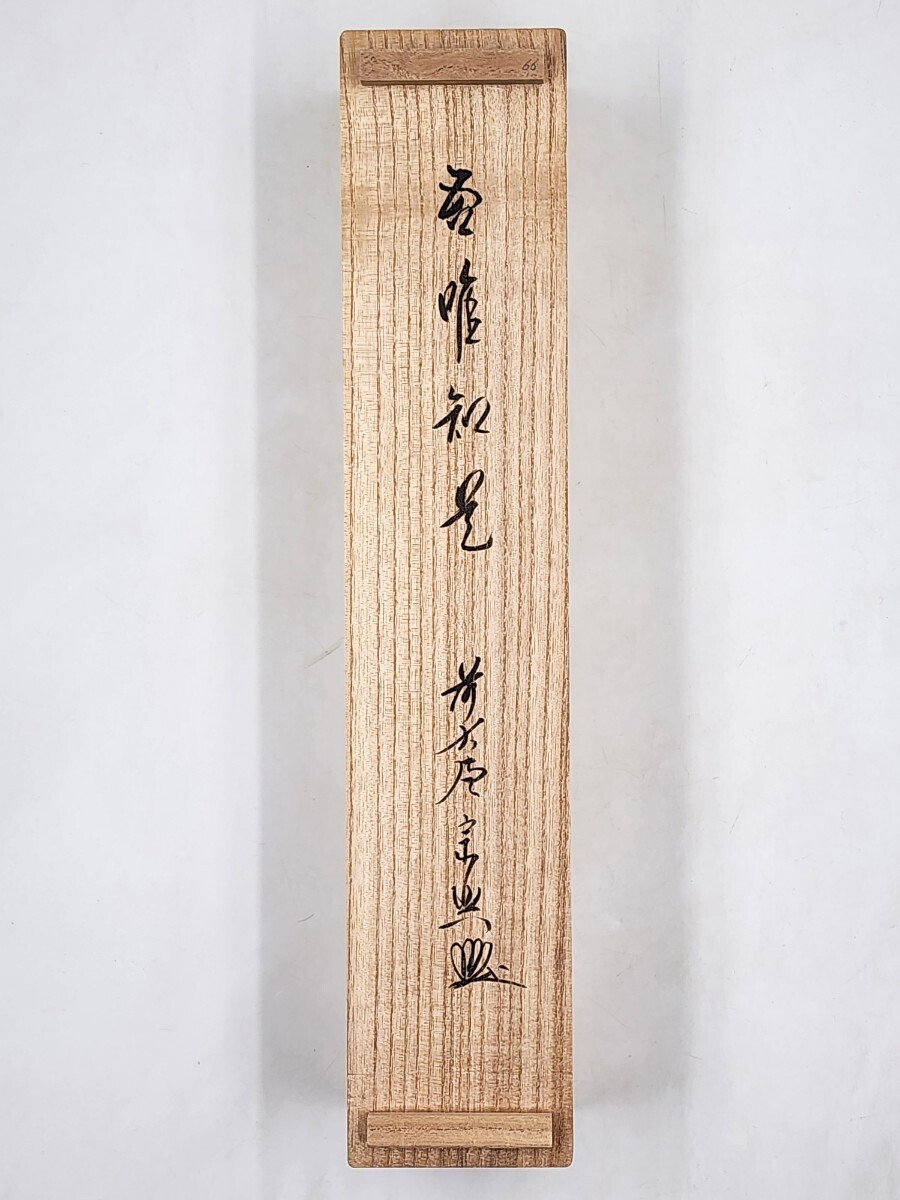 66
吾唯知足 前大徳 宗典